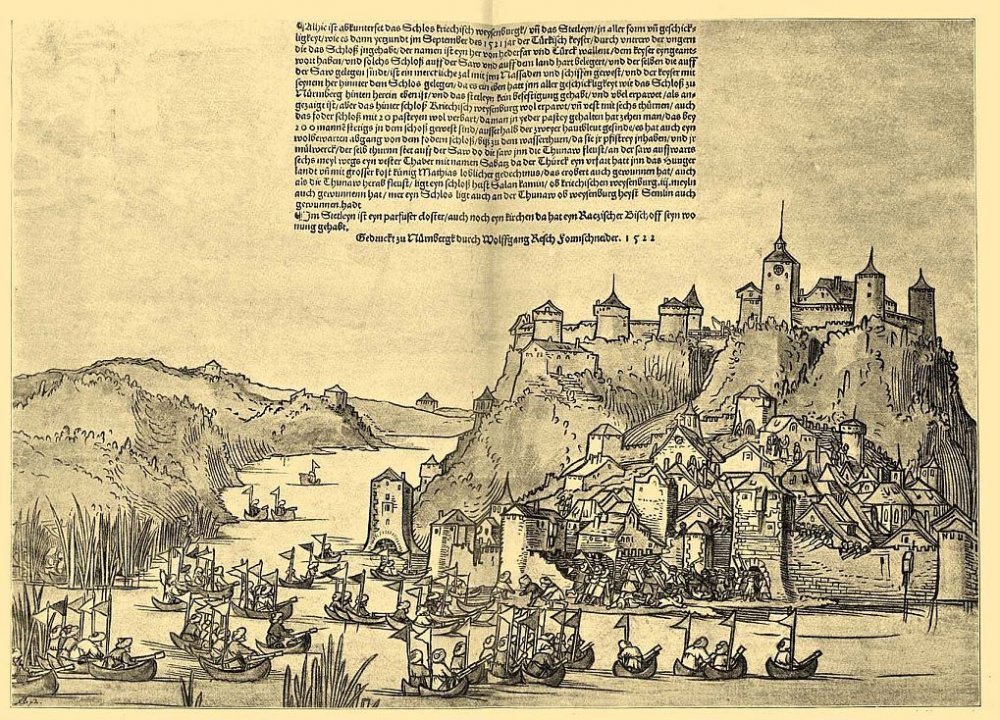 ¶Allhie ist abkunterfet das Schlos kriechisch weysenburgk/ vñ das Stetleyn/in aller form vñ gschick⸗
ligkeyt/wie es dann yezundt jm September des 1521 jar der Türkisch keyser/durch untrew der ungern
die das Schloß jngehabt/der namen ist eyn her von hederfar vnd Türck wallent/dem keyser eyngeants
wort haben/vnd solchs Schloß auff der Saw vnd auff dem land hart belegert/vnd der selben die auff
der Saw gelegen sindt/ist ein merckliche zal mit jren Nassaden vnd schiffen gewest/vnd der keyser mit
seynem her hinnter dem Schlos gelegen/da es ein eben hatt jnn aller geschickligkeyt wie das Schloß zu
Nürmberg hinten herein eben ist/vnd das stetleyn kein befestigung gehabt/vnd vbel erpawet/als an⸗
gezaigt ist/aber das hinter schloß Kriechisch weysenburg wol erpawt/vñ vest mit sechs thürnen/auch
das foder schloß mit 20 pasteyen wol verbart/da man in yeder pastey gehalten hat zehen man/das bey
200 mannē stetigs in dem schloß gewest sind/ausserhalb der zweyer haubtleut gesinde/es hat auch eyn
wolbewarten abgang von dem fodern schloß/biß zu dem wasserthurn/da sie jr pfistrey inhaben/vnd jr
mülwerck/der selb thurnn stet auff der Saw do die saw jnn die Thunaw fleust/an der saw auffwarts
sechs meyl wegs eyn vester Thaber mit namen Sabatz da der Thürck eyn vrsait hatt jnn das Hunger
landt vñ mit grosser kost künig Mathias loblicher gedechtnus/das erobert auch gewunnen hat/auch
als die Thunaw herab fleust/ligt eyn schloß heist Salan kamin/ob kriechischen weysenburg.iij.meyln
auch gewunnenn hat/mer eyn Schlos ligt auch an der Thunaw ob weysenburg heyst Semlin auch
gewunnen.hadt
¶Jm Stetleyn ist eyn parfuser closter/auch noch eyn kirchen da hat eyn Raezischer Bischoff seyn wo
nung gehabt.
Gedruckt zu Nürnbergk durch Wolffgang Resch Formschneider. 1522